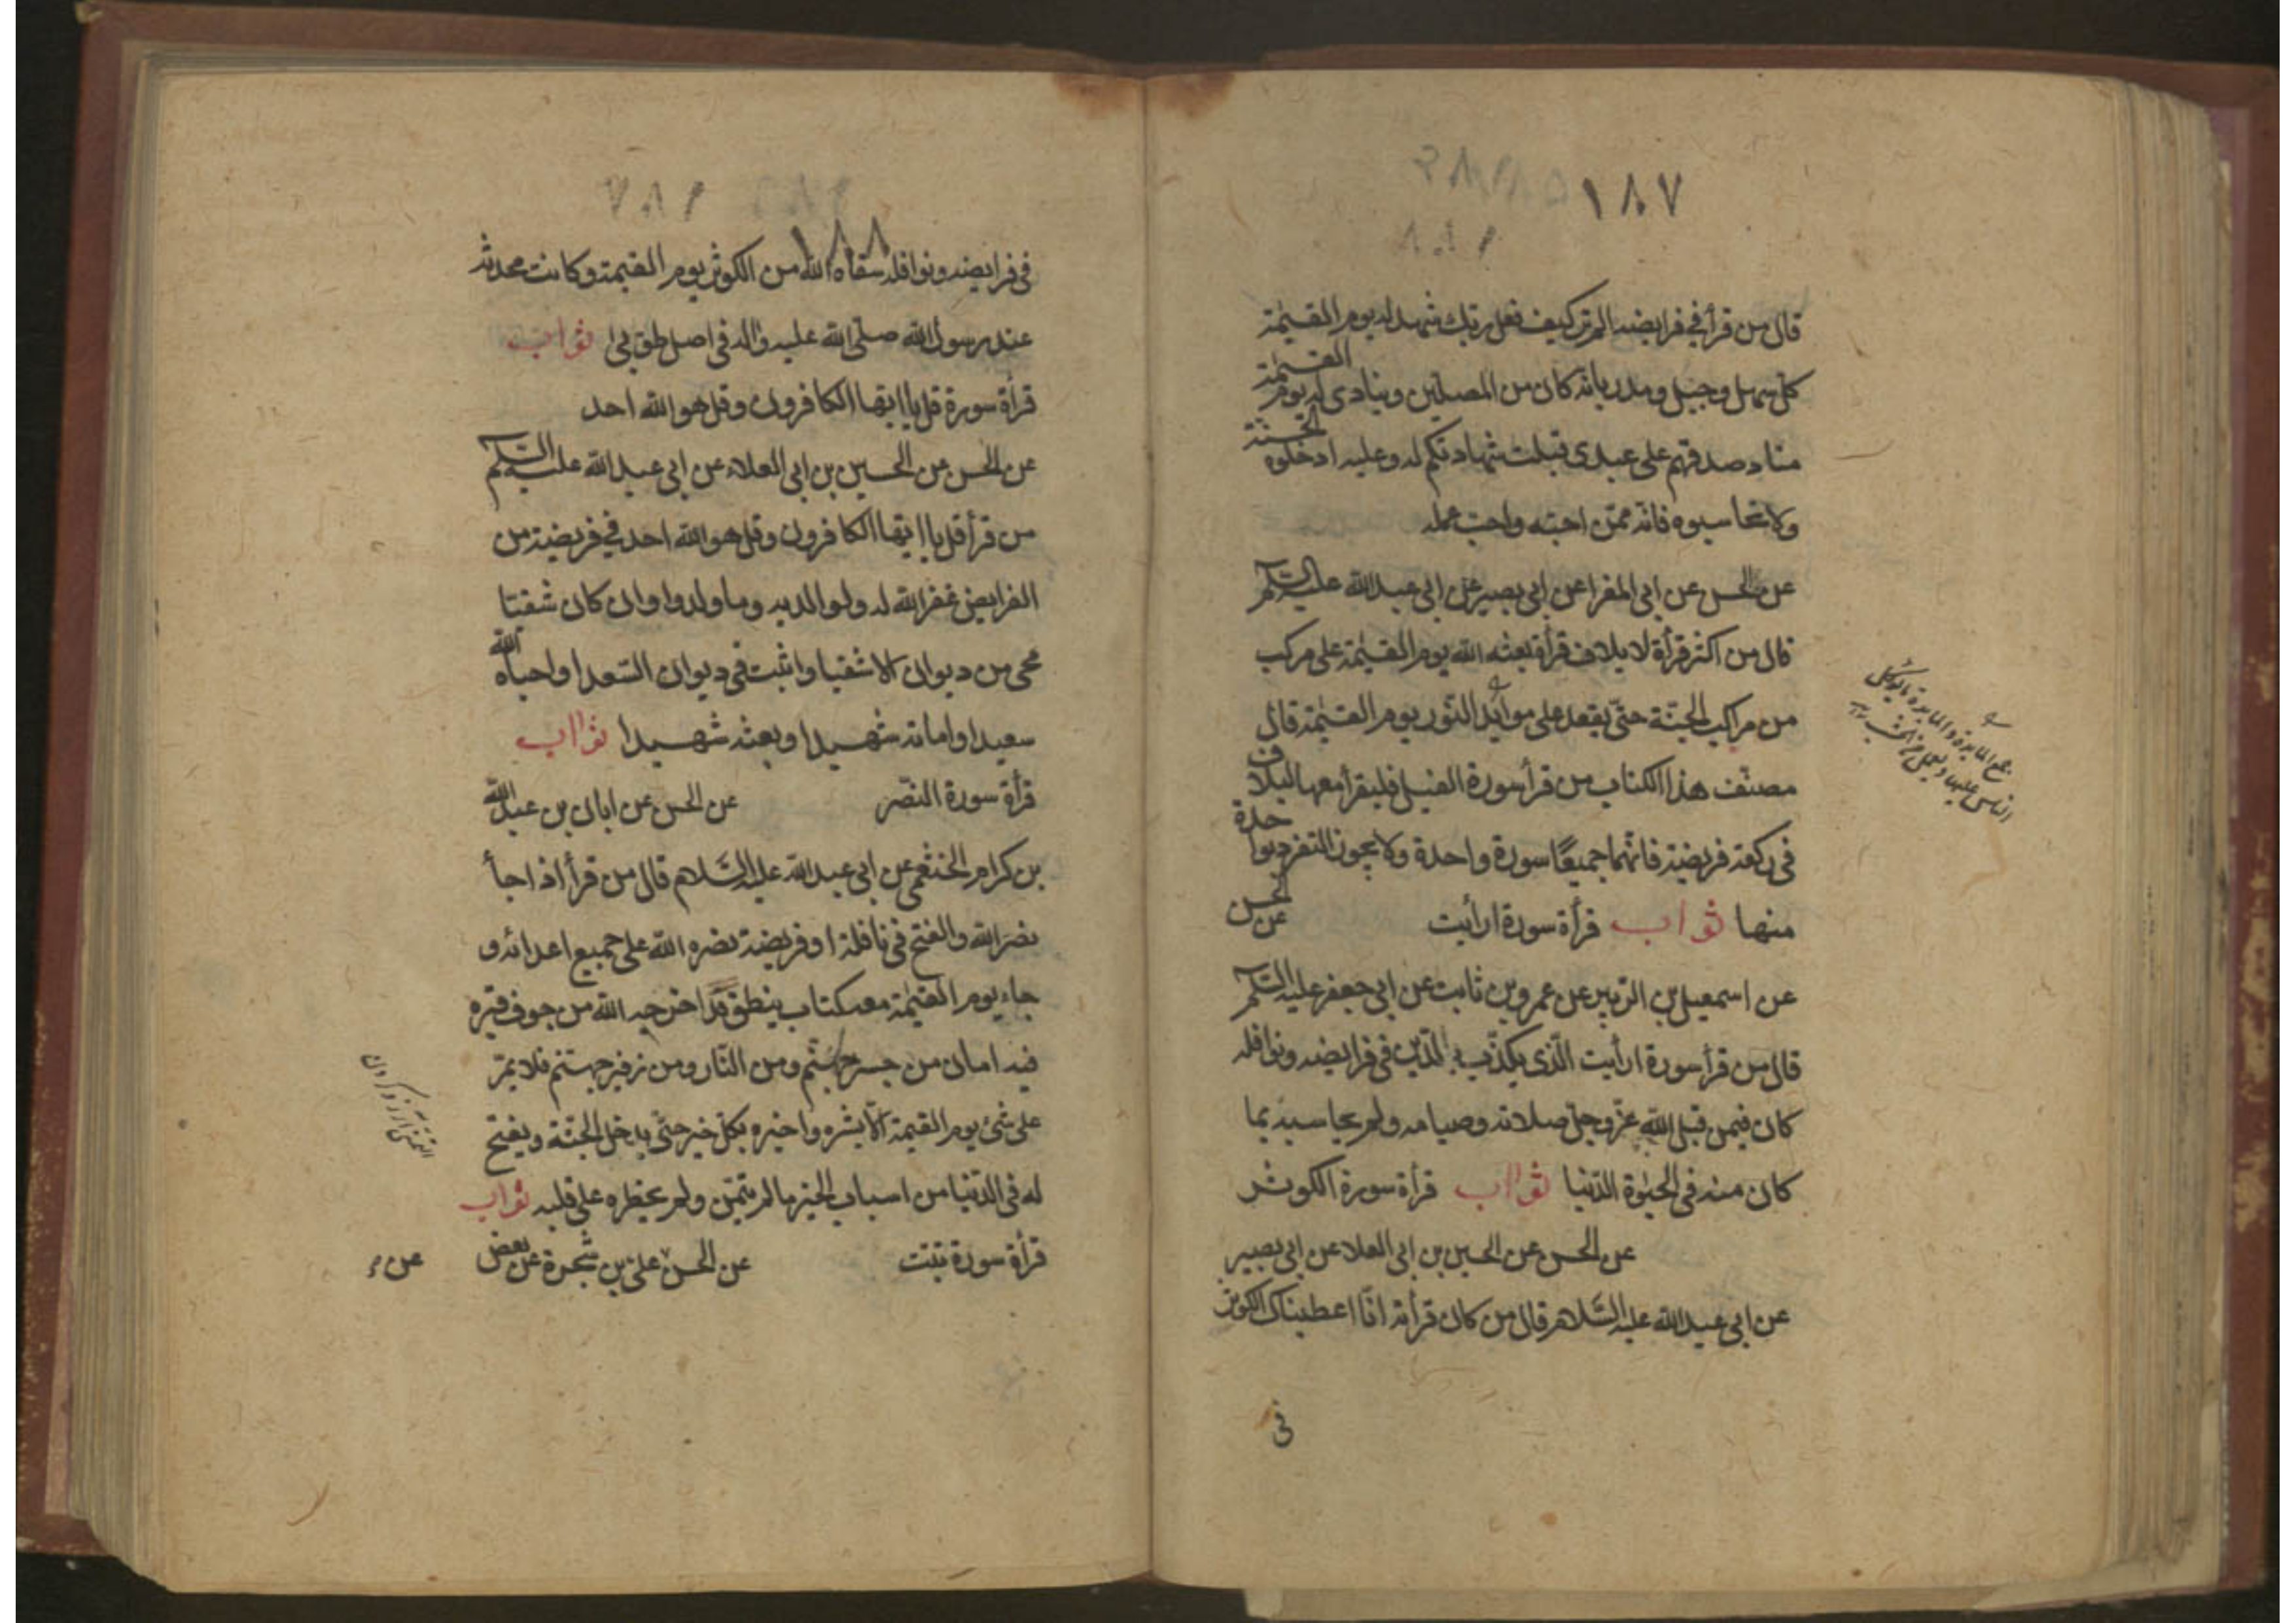 ١٨٧
قال من قرأ في فرايضه الم تر كيف فعل ربك شهد له يوم القيمة
كل سهل وجبل ومدر بانه كان من المصلين وينادى له يوم القيمة
مناد صدقتم على عبدى قبلت شهادتكم له وعليه ادخلوه الجنة
ولا تحاسبوه فانه ممن احبه واحب عمله
عن الحسن عن ابى المغرا عن ابى بصير عن ابى عبد الله عليه السلم
قال من اكثر قرأة لايلاف قرأة بعثه الله يوم القيمة على مركب
من مراكب الجنة حتى يقعد على موائد النور يوم القيمة قال
مصنف هذا الكتاب من قرأ سورة الفيل فليقرأ معها ليلاف
فى ركعة فريضة فانهما جميعًا سورة واحدة ولا يجوز التفرد بواحدة
منها ثواب قرأة سورة ارأيت عن الحسن
عن اسمعيل بن الزبير عن عمرو بن ثابت عن ابى جعفر عليه السلم
قال من قرأ سورة ارأيت الذى يكذب بالدين فى فرايضه ونوافله
كان فيمن قبل الله عز وجل صلاته وصيامه ولم يحاسبه بما
كان منه فى الحيوة الدنيا ثواب قرأة سورة الكوثر
عن الحسن عن الحسين بن ابى العلا عن ابى بصير
عن ابى عبد الله عليه السلام قال من كان قرأته انا اعطيناك الكوثر
فى
١٨٨
فى فرايضه ونوافله سقاه الله من الكوثر يوم القيمة وكانت محدثه
عند رسول الله صلى الله عليه واله فى اصل طوبى ثواب
قرأة سورة قل يا ايها الكافرون وقل هو الله احد
عن الحسن عن الحسين بن ابى العلاء عن ابى عبد الله عليه السلم
من قرأ قل يا ايها الكافرون وقل هو الله احد فى فريضة من
الفرايض غفر الله له ولوالديه وما ولدوا وان كان شقيا
محى من ديوان الاشقيا واثبت فى ديوان السعدا واحياه الله
سعيدا واماته شهيدا وبعثه شهيدا ثواب
قرأة سورة النصر عن الحسن عن ابان بن عبد الله
بن كرام الخثعمى عن ابى عبد الله عليه السلام قال من قرأ اذا جأ
نصر الله والفتح فى نافلة او فريضة نصره الله على جميع اعدائه و
جاء يوم القيمة معه كتاب ينطق قد اخرجه الله من جوف قبره
فيه امان من جسر جهنم ومن النار ومن زفير جهنم فلا يمر
على شئ يوم القيمة الا بشره واخبره بكل خير حتى يدخل الجنة ويفتح
له فى الدنيا من اسباب الخير ما لم يتمن ولم يخطره على قلبه ثواب
قرأة سورة تبت عن الحسن على بن شجرة عن بعض